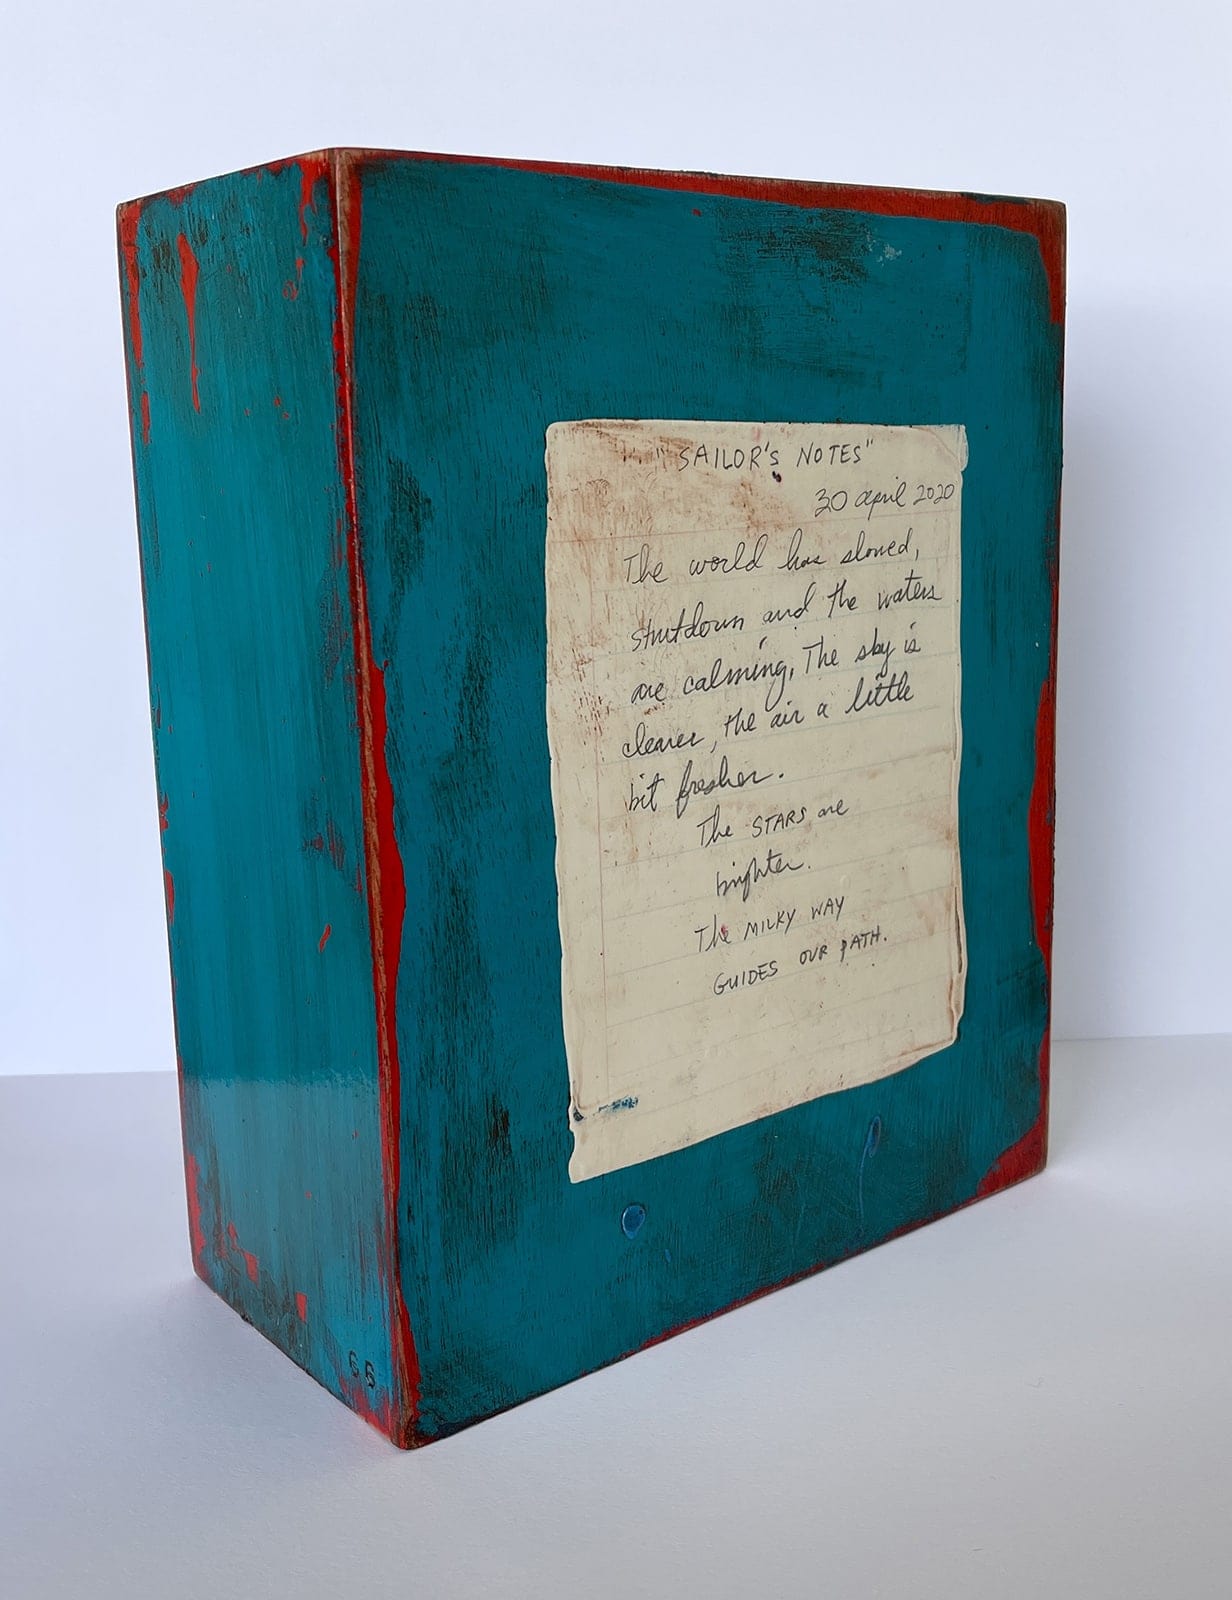 "SAILOR'S NOTES"
30 april 2020
The world has slowed,
shutdown and the waters
are calming, The sky is
clearer, the air a little
bit fresher.
The STARS are
brighter.
The MILKY WAY
GUIDES OUR PATH.
GG